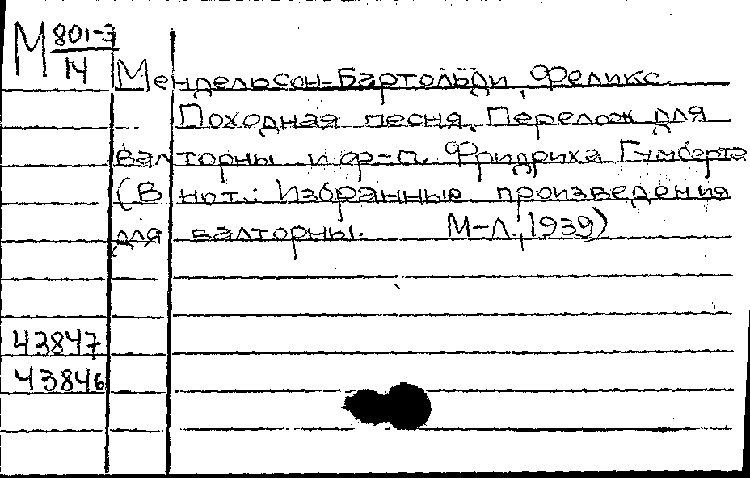 М 801-3
14
Мендельсон-Бартольди, Феликс.
Походная песня. Перелож. для
валторны и ф-п. Фридриха Гумберта
(В нот.: Избранные произведения
для валторны. М-Л., 1939)
43847
43846